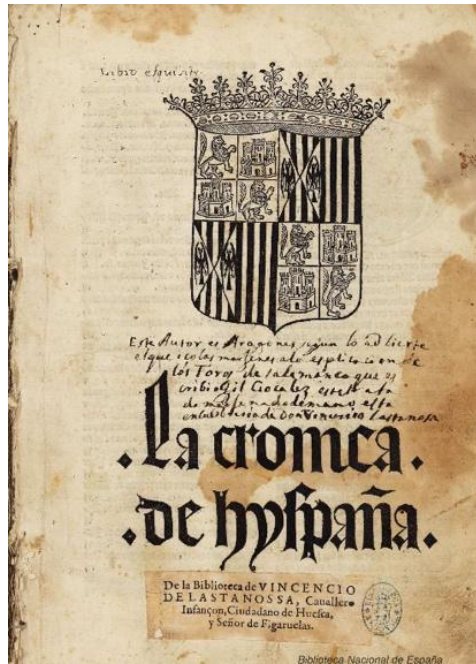 Libro esquisito
Este Autor es Aragones segun lo adbierte
el que
los Toros de salamanca que es
cribio Gil
de
de Don Vincencio Lastanosa
.La cronica.
.de hyſpaña.
De la Biblioteca de VINCENCIO
DE LASTANOSSA, Cauallero
Infançon, Ciudadano de Hueſca,
y Señor de Figaruelas.
Biblioteca Nacional de España